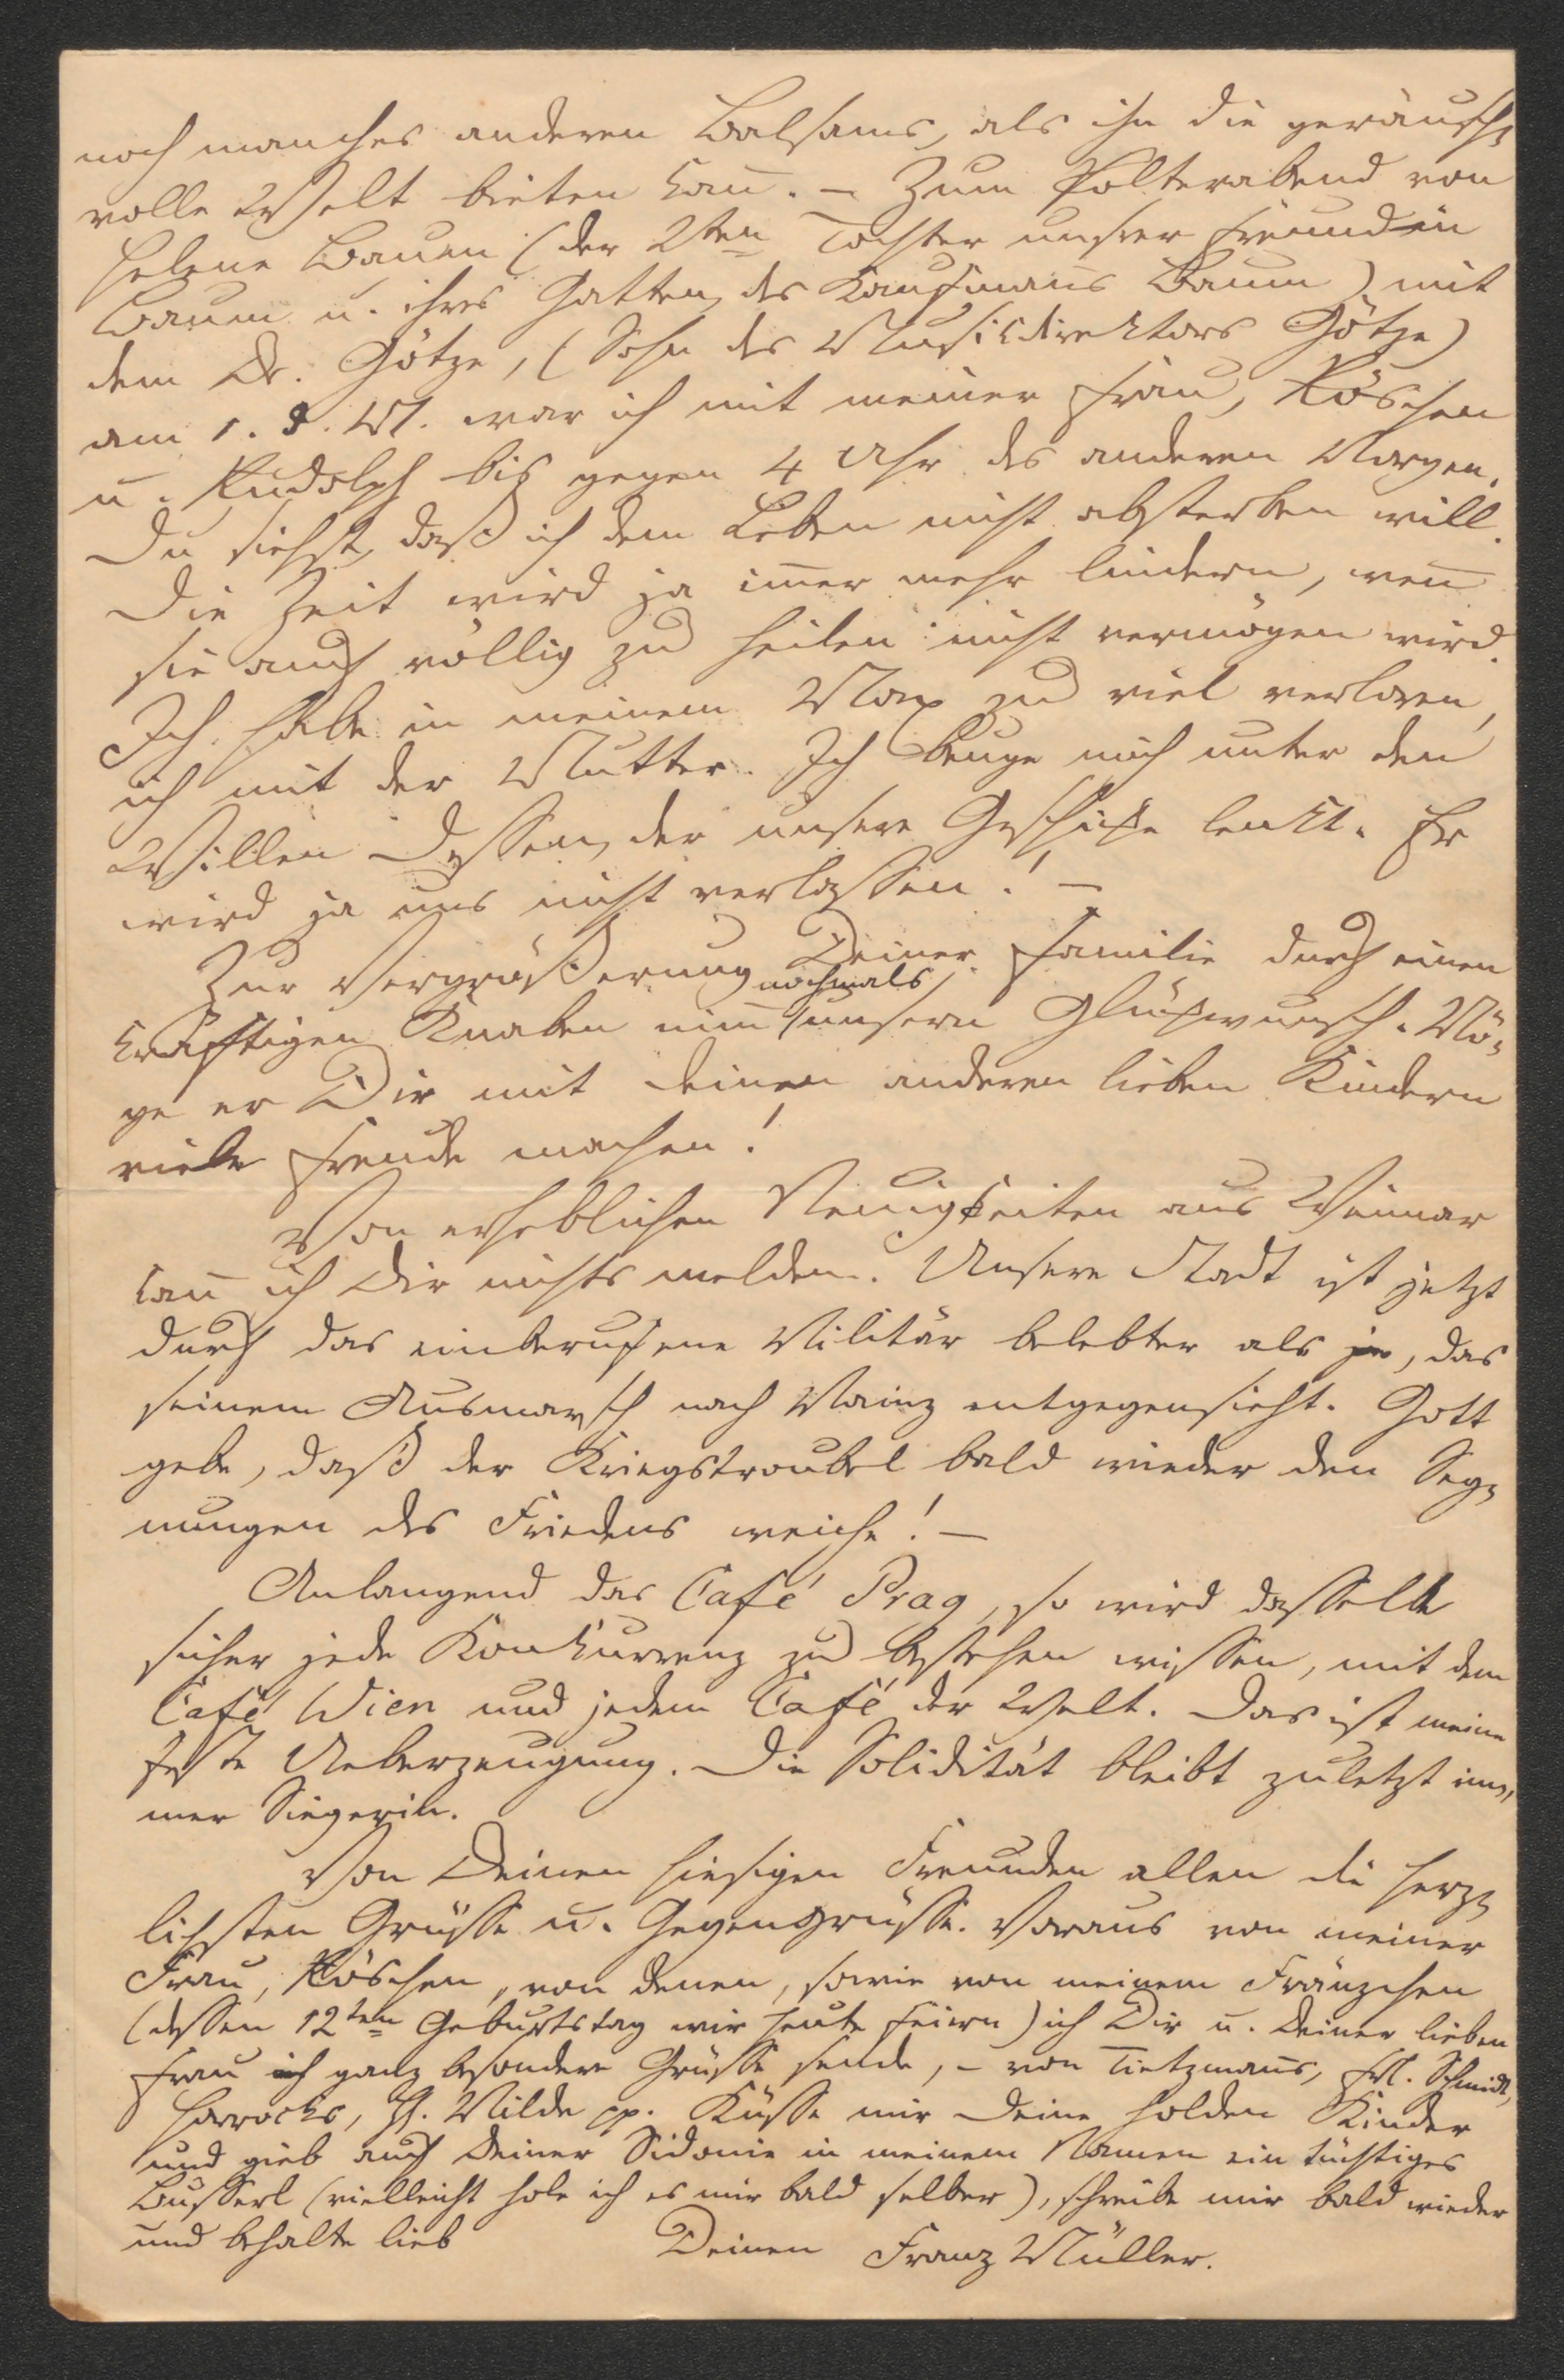 noch manches anderen Balsams, als ihn die geräusch=
volle Welt bieten kan̅. – Zum Polterabend von
Helene Baum (der 2ten Tochter unsrer Freundin
Baum u. ihres Gatten, des Kaufman̅s Baum) mit
dem Dr. Götze, (Sohn des Musikdirektors Götze)
am 1. d. M. war ich mit meiner Frau, Röschen
u. Rudolph bis gegen 4 Uhr des anderen Morgen.
Du siehst, daß ich dem Leben nicht absterben will.
Die Zeit wird ja im̅er mehr lindern, wen̅
sie auch völlig zu heilen nicht vermögen wird.
Ich habe in meinem Max zu viel verloren,
ich mit der Mutter. Ich beuge mich unter den
Willen Dessen, der unsere Geschicke lenkt. Er
wird ja uns nicht verlassen! –
Zur Vergrößerung Deiner Familie durch einen
kräftigen Knaben nim̅ nochmals unsern Glückwunsch. Mö=
ge er Dir mit Deinen anderen lieben Kindern
viele Freude machen!
Von erheblichen Neuigkeiten aus Weimar
kan̅ ich Dir nichts melden. Unsere Stadt ist jetzt
durch das einberufene Militär belebter als je, das
seinem Ausmarsch nach Mainz entgegensieht. Gott
gebe, daß der Kriegstroubel bald wieder den Seg=
nungen des Friedens weiche! –
Anlangend das Café Prag, so wird dasselbe
sicher jede Konkurrenz zu bestehen wissen, mit dem
Café Wien und jedem Café der Welt. Das ist meine
feste Ueberzeugung. Die Solidität bleibt zuletzt im=
mer Siegerin.
Von Deinen hiesigen Freunden allen die herz=
lichsten Grüsse u. Gegengrüsse. Voraus von meiner
Frau, Röschen, von denen, sowie von meinem Fränzchen
(dessen 12ten Geburtstag wir heute feiern) ich Dir u. Deiner lieben
Frau ganz besondere Grüsse sende, – von Tietzman̅s, Frl. Schmidt,
Horrocks, Milde pp. Küsse mir Deine holden Kinder
und gieb auch Deiner Sidonie in meinem Namen ein tüchtiges
Busserl (vielleicht hole ich es mir bald selber), schreibe mir bald wieder
und behalte lieb Deinen Franz Müller.